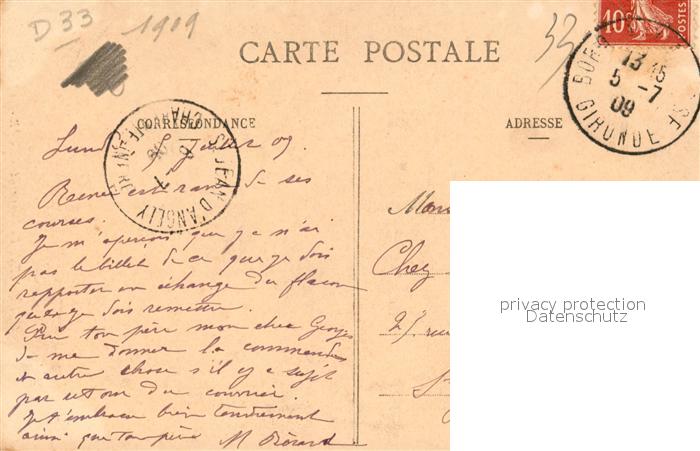 D 33 1909
33
CARTE POSTALE
10c
POSTES
BORDEAUX
13 45
5 -7
09
GIRONDE
CORRESPONDANCE
ADRESSE
ST JEAN D'ANGELY
CHARENTE-INFRE
Lundi 5 Juillet 09.
de ses
courses.
Je m'aperçois que je n'ai
pas le billet de ce que je dois
rapporter en échange du flacon
que je dois remettre.
Prie ton père mon cher Georges
de me donner la commande
et autre chose s'il y a sujet
par retour du courrier.
Je t'embrasse bien tendrement
ainsi que ton père M
Chez
25 rue
privacy protection
Datenschutz